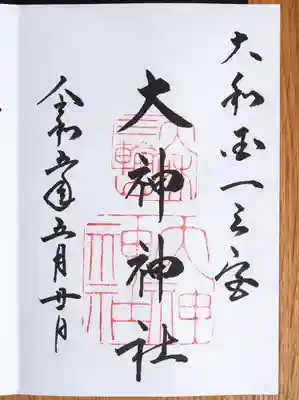 大和国一之宮
大神神社
大神
神社
令和五年五月廿日